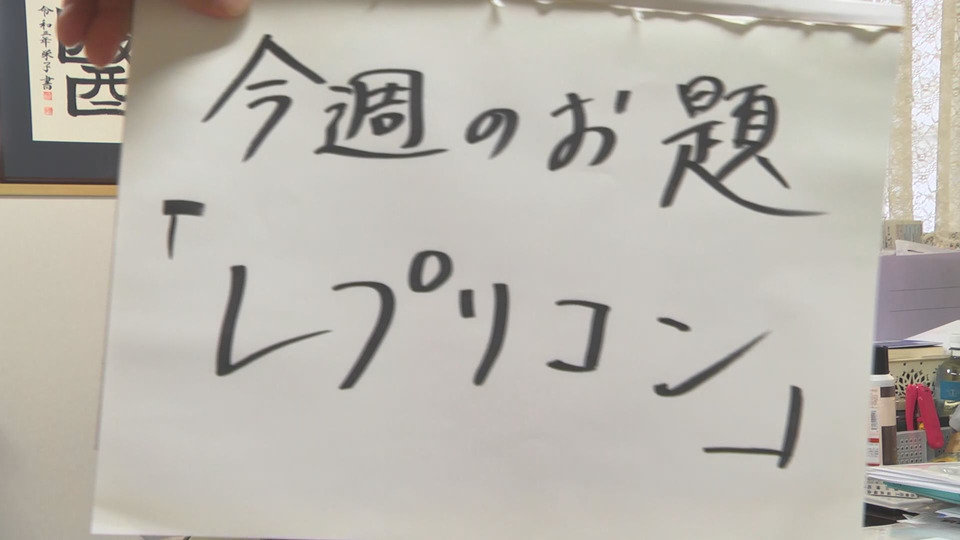 今週のお題
「レプリコン」
令和五年 栄子書